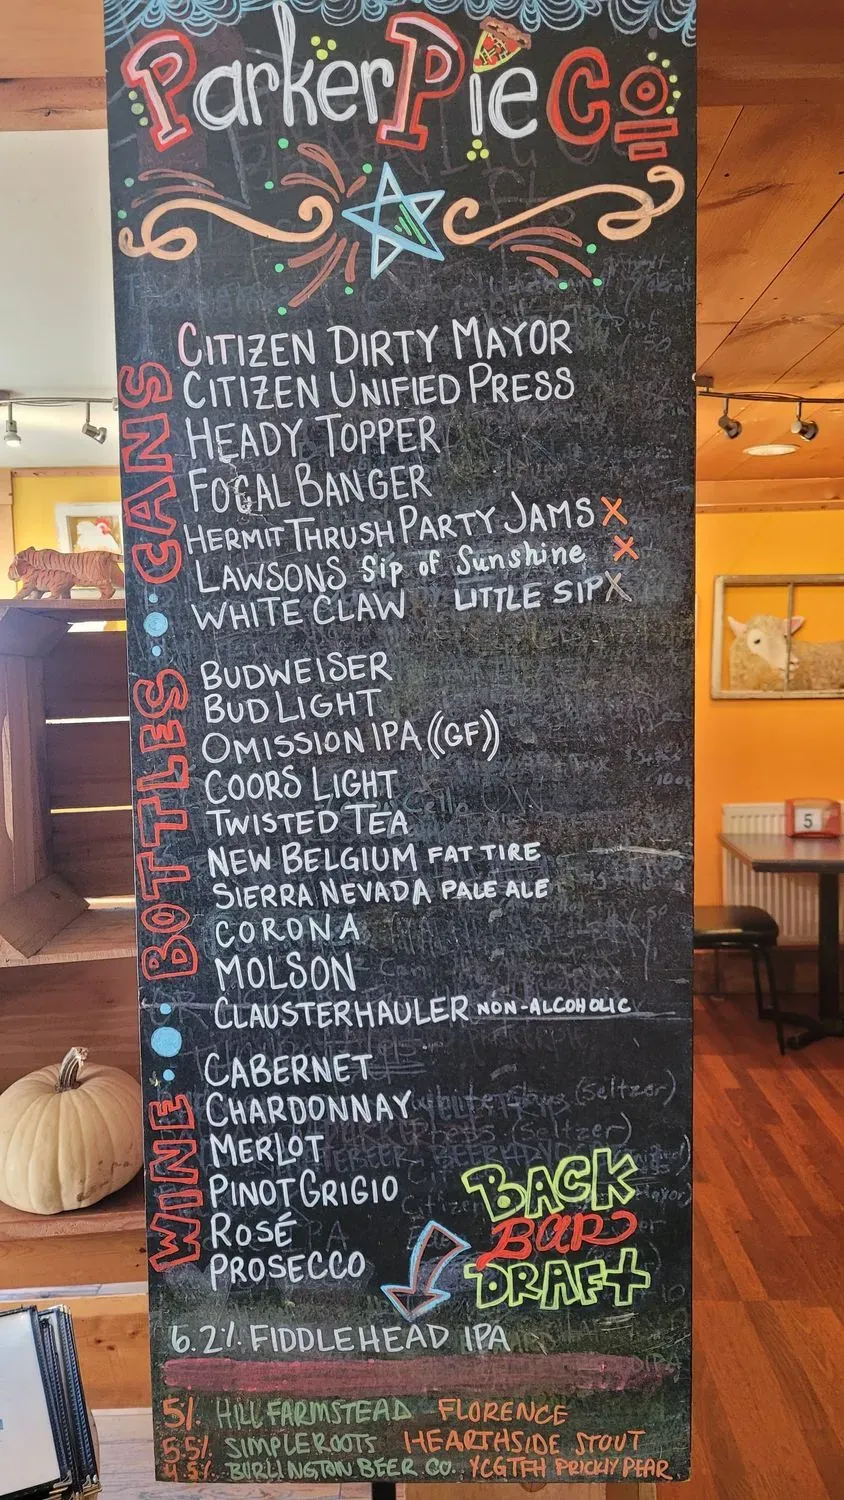 Parker Pie Co
CANS
CITIZEN DIRTY MAYOR
CITIZEN UNIFIED PRESS
HEADY TOPPER
FOCAL BANGER
HERMIT THRUSH PARTY JAMS X
LAWSONS Sip of Sunshine X
WHITE CLAW LITTLE SIP X
BOTTLES
BUDWEISER
BUD LIGHT
OMISSION IPA ((GF))
COORS LIGHT
TWISTED TEA
NEW BELGIUM FAT TIRE
SIERRA NEVADA PALE ALE
CORONA
MOLSON
CLAUSTERHAULER NON-ALCOHOLIC
WINE
CABERNET
CHARDONNAY
MERLOT
PINOT GRIGIO
ROSÉ
PROSECCO
BACK
BAR
DRAFT
6.2% FIDDLEHEAD IPA
5% HILL FARMSTEAD FLORENCE
5.5% SIMPLE ROOTS HEARTHSIDE STOUT
4.5% BURLINGTON BEER CO. YCGTFH PRICKLY PEAR
5